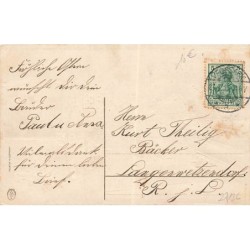 Fröhliche Ostern
wünscht dir dein
Bruder
Paul u Anna
Vielmalsdank
für deinen lieben
Brief.
Herrn
Kurt Theilig
Bäcker
Langenwetzendorf
R. j. L.